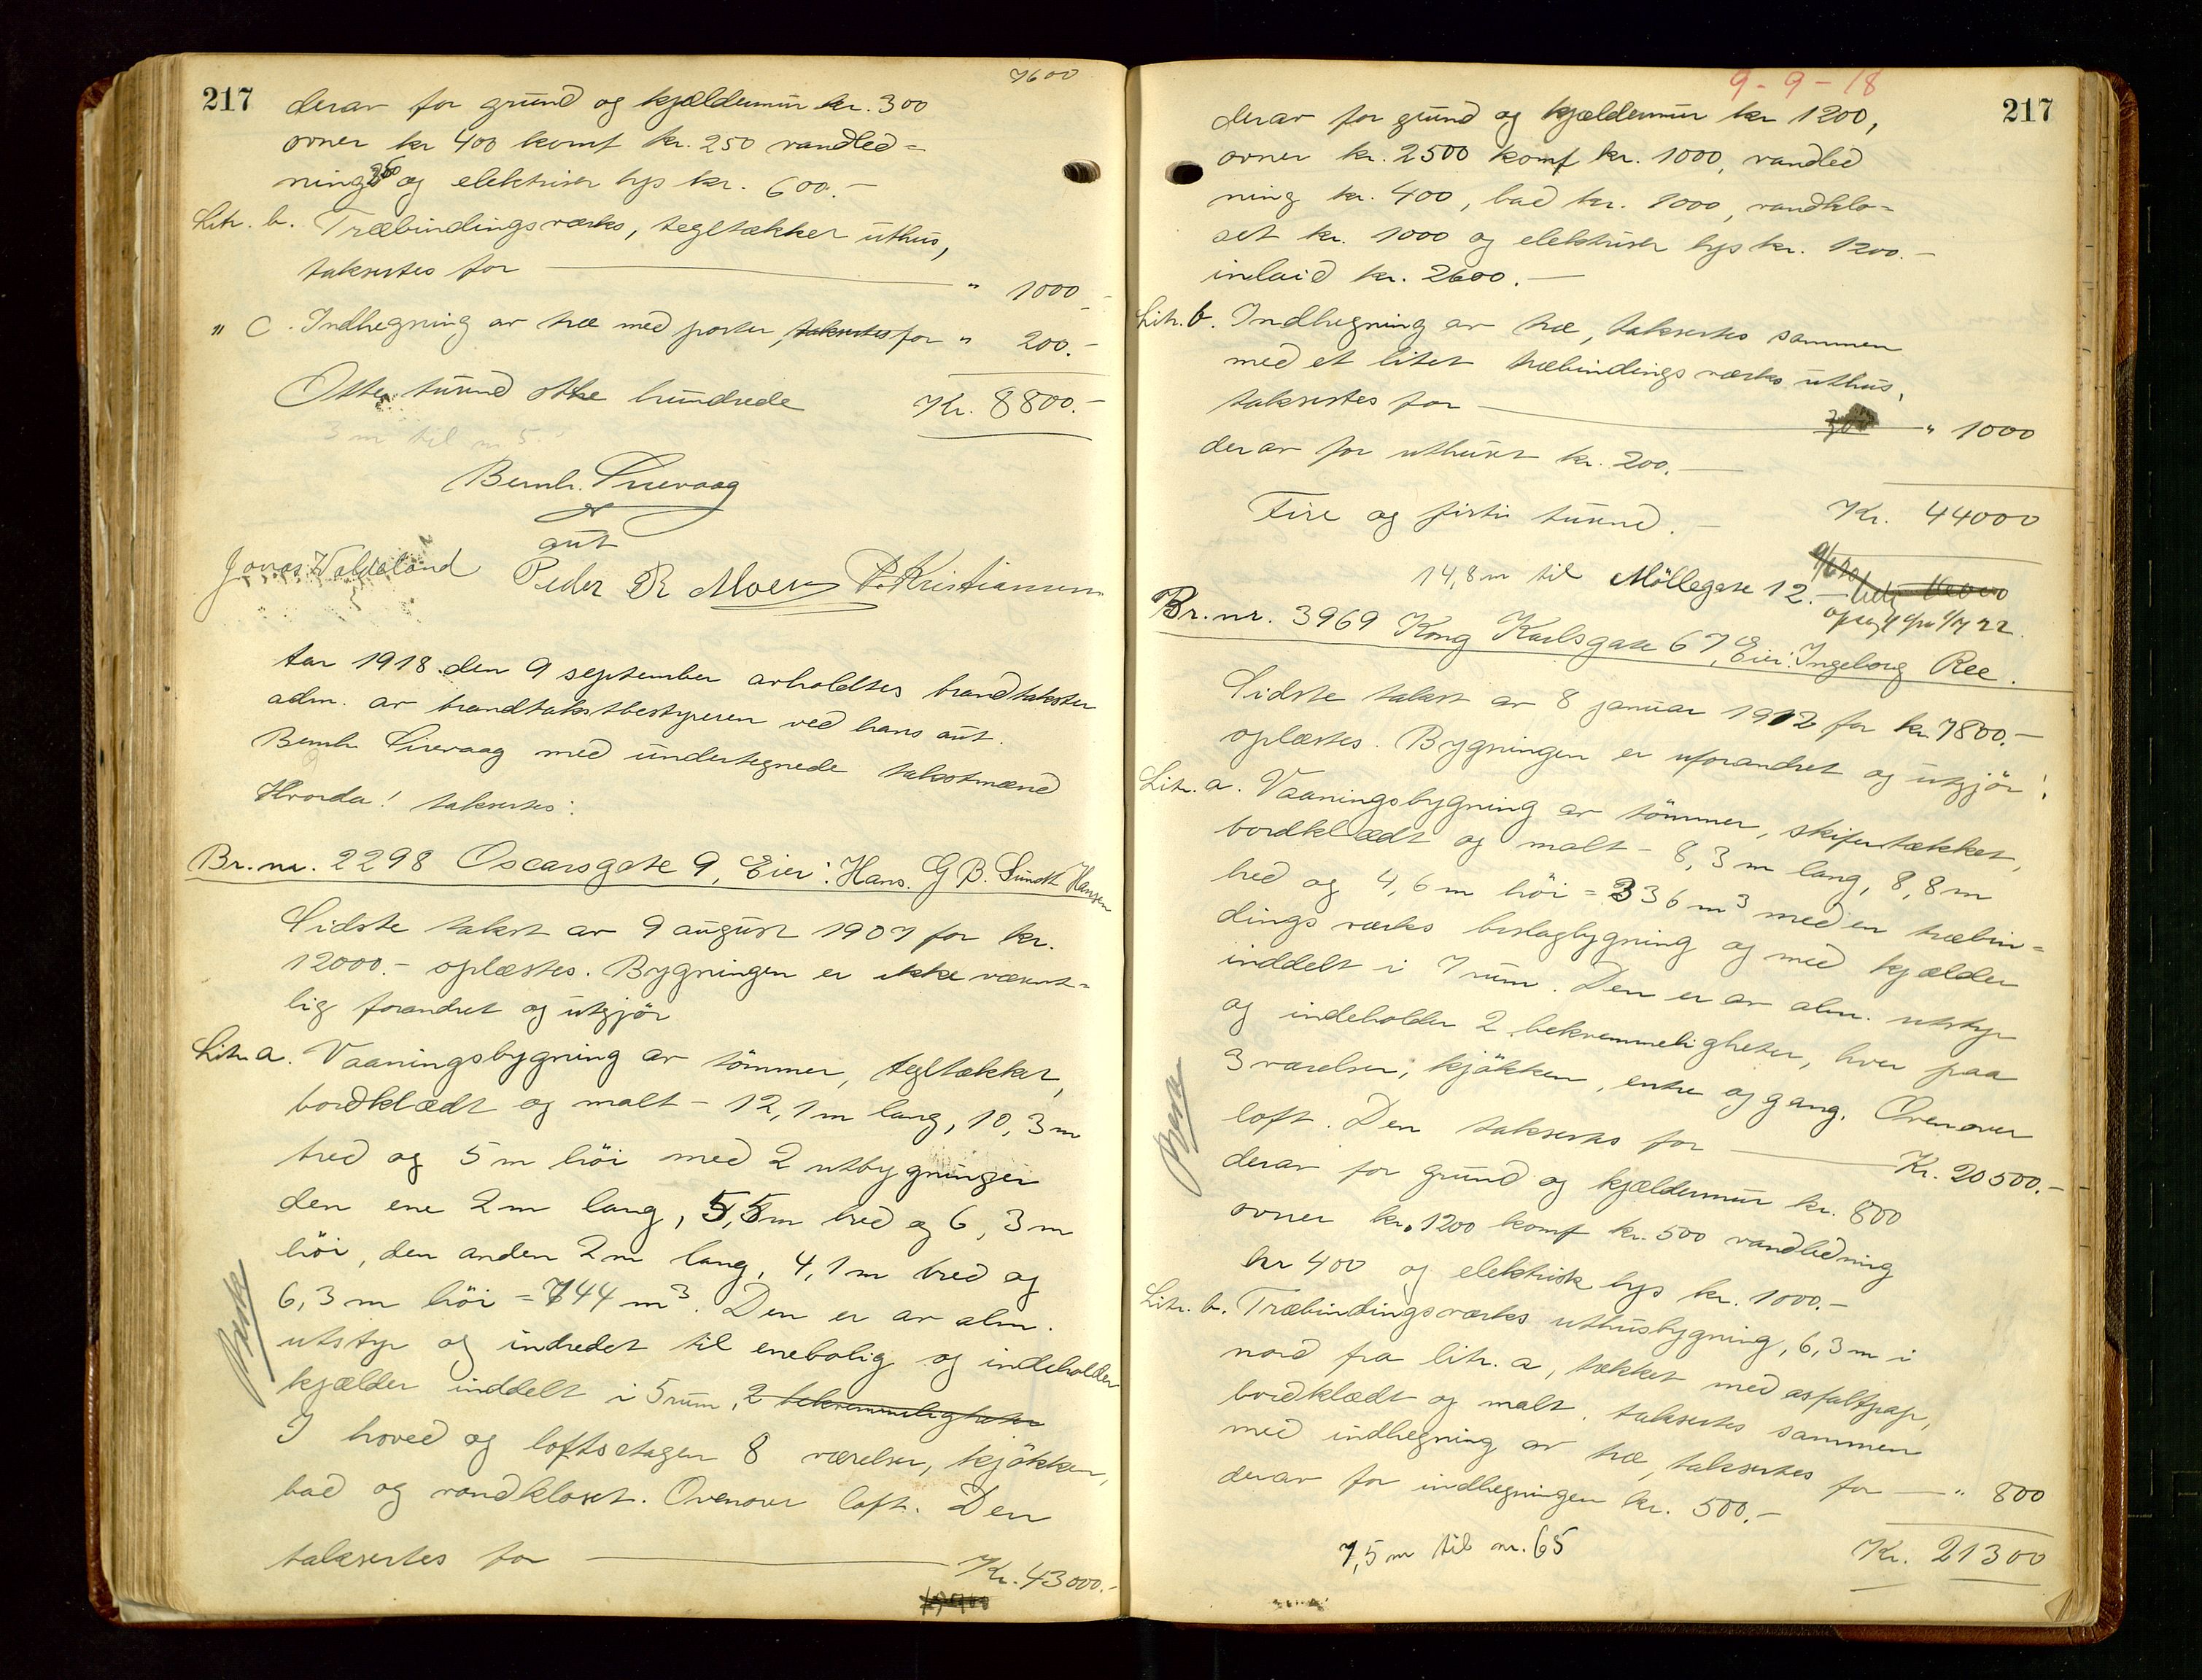 217
7600
derav for grund og kjældermur kr. 300
ovner kr 400 komf kr. 250 vandled=
ning 250 og elektrisk lys kr. 600.-
Litr. b. Træbindingsverks, tegltækket uthus,
takseres for " 1000.-
" C. Indhegning av træ med porter, taksertes for " 200.-
Otte tusund otte hundrede Kr. 8800.-
3 m til nr. 5.
Bernh. Sirevaag
aut
Jonas Valdeland Peder R Moen P. Kristiansen
Aar 1918 den 9 september avholdtes brandtakster
adm. av brandtakstbestyreren ved hans aut.
Bernh. Sirevaag med undertegnede takstmænd
Hvorda! taksertes:
Br.nr. 2298 Oscarsgate 9, Eier: Hans. G B. Sundt Hansen
Sidste takst av 9 august 1907 for kr.
12000.- oplæstes. Bygningen er ikke væsent=
lig forandret og utgjör
Litr. a. Vaaningsbygning av tömmer, tegltækket,
bordklædt og malt - 12,1 m lang, 10,3 m
bred og 5 m höi med 2 utbygninger
den ene 2 m lang, 5,5 m bred og 6,3 m
höi, den anden 2 m lang, 4,1 m bred og
6,3 m höi = 744 m³. Den er av alm.
utstyr og indredet til enebolig og indeholder
kjælder inddelt i 5 rum, 2 bekvemmeligheter
I hoved og loftsetagen 8 værelser, kjökken,
bad og vandkloset. Ovenover loft. Den
taksertes for Kr. 43000.-
9-9-18
217
derav for grund og kjældermur kr 1200,
ovner kr. 2500 komf kr. 1000, vandled
ning kr. 400, bad kr. 1000, vandklo=
set kr. 1000 og elektrisk lys kr. 1200.-
inlaid kr. 2600.-
Litr. b. Indhegning av træ, taksertes sammen
med et litet træbindingsværks uthus,
taksertes for " 1000
derav for uthuset kr. 200.-
Fire og firti tusund.- Kr. 44000
14,8 m til Möllegate 12.-
Br.nr. 3969 Kong Karlsgate 67, Eier: Ingeborg Ree.
Sidste takst av 8 januar 1912 for kr. 7800.-
oplæstes. Bygningen er uforandret og utgjör:
Litr. a. Vaaningsbygning av tömmer, skifertækket,
bordklædt og malt - 8,3 m lang, 8,8 m
bred og 4,6 m höi = 336 m³ med en træbin=
dings værks beslagbygning og med kjælder
inddelt i 7 rum. Den er av alm. utstyr
og indeholder 2 bekvemmeligheter, hver paa
3 værelser, kjökken, entre og gang. Ovenover
loft. Den taksertes for Kr. 20500.-
derav for grund og kjældermur kr. 800
ovner kr. 1200 komf kr. 500 vandledning
kr 400 og elektrisk lys kr. 1000.-
Litr. b. Træbindingsværks uthusbygning, 6,3 m i
nord fra litr. a, tækket med asfaltpap,
bordklædt og malt, taksertes sammen
med indhegning av træ, taksertes for " 800
derav for indhegningen kr. 500.-
7,5 m til nr. 65 Kr. 21300